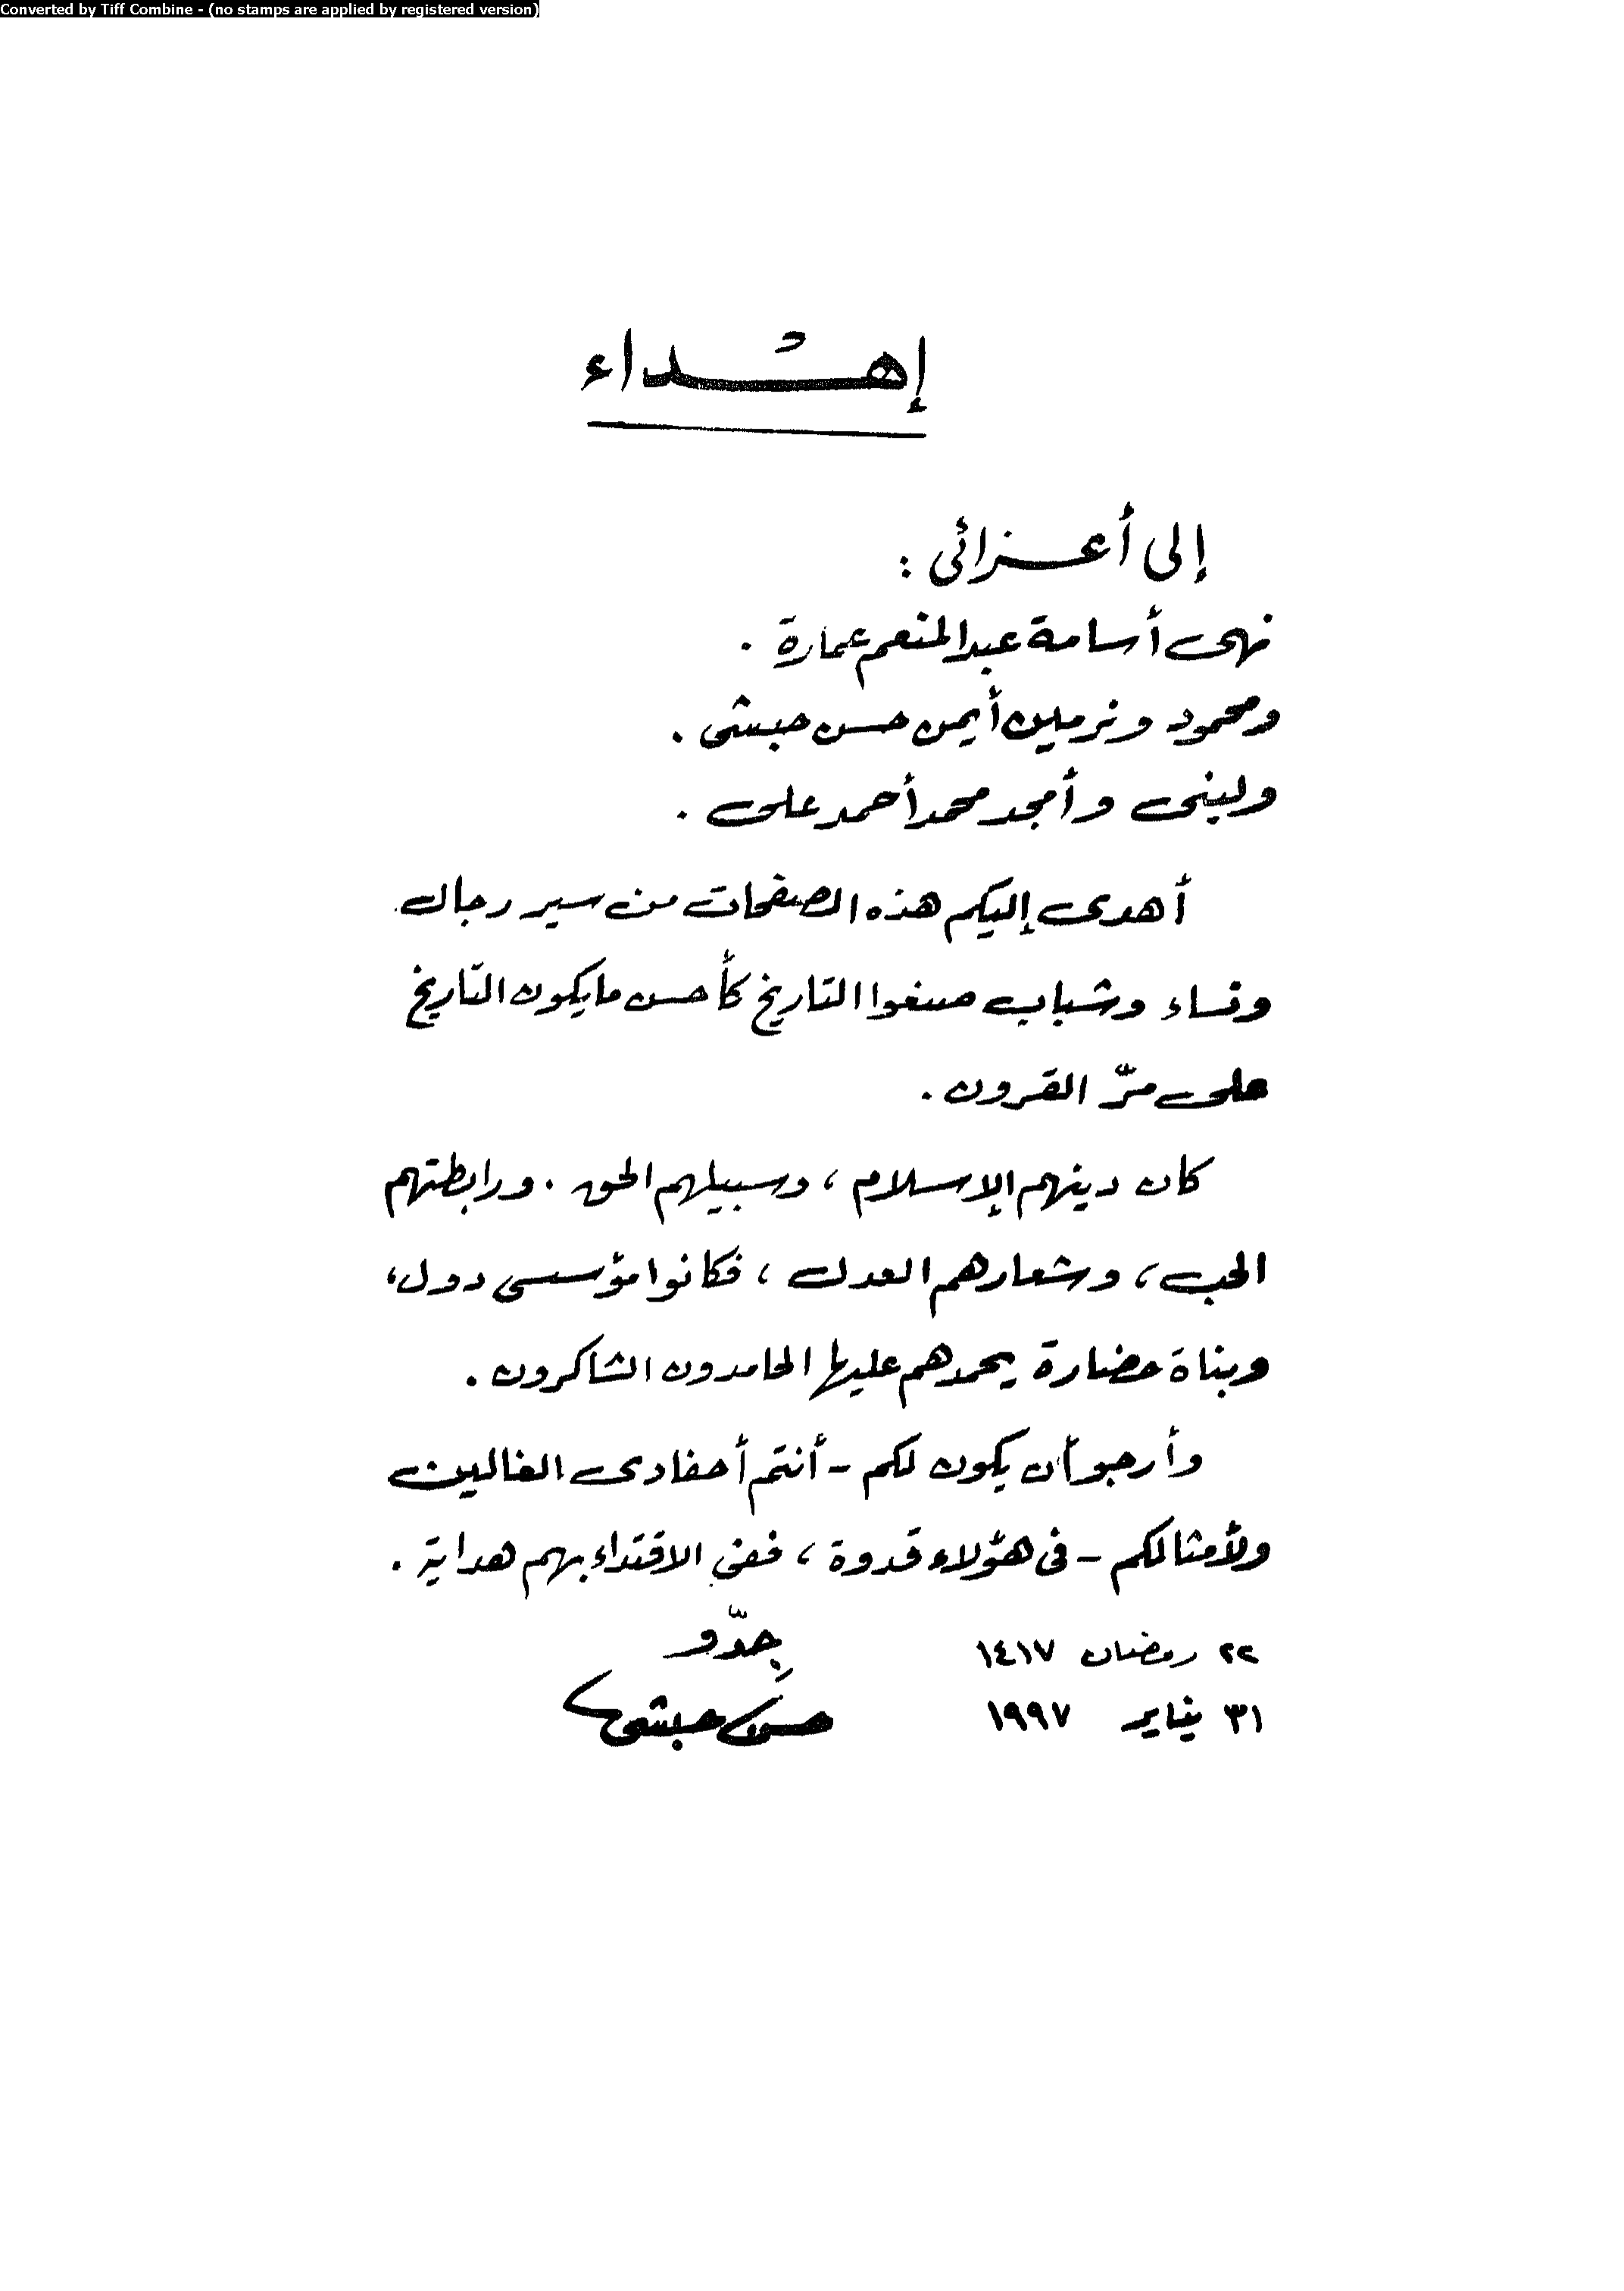 Converted by Tiff Combine - (no stamps are applied by registered version)
إهْداء
إلى أعزائى :
نهى أسامة عبدالمنعم عمارة .
ومحمود ونرمين أيمن حسن حبشى .
ولبنى وأمجد محمد أحمد على .
أهدى إليكم هذه الصفحات من سير رجال
ونساء وشباب صنعوا التاريخ كأحسن ما يكون التّاريخ
على مرّ القرون .
كان دينهم الإسلام ، وسبيلهم الحق . ورابطتهم
الحب ، وشعارهم العدل ، فكانوا مؤسسى دول ،
وبناة حضارة يحمدهم عليها الحامدون الشاكرون .
وأرجو أن يكون لكم - أنتم أحفادى الغالين
ولأمثالكم - فى هؤلاء قدوة ، ففى الاقتداء بهم هداية .
جِدّو
٢٢ رمضان ١٤١٧
حسن حبشى
٣١ يناير ١٩٩٧